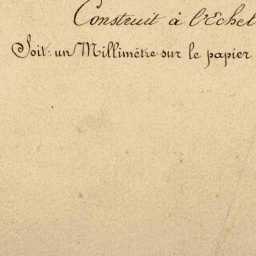 Construit à l'Echel
Soit: un Millimètre sur le papier